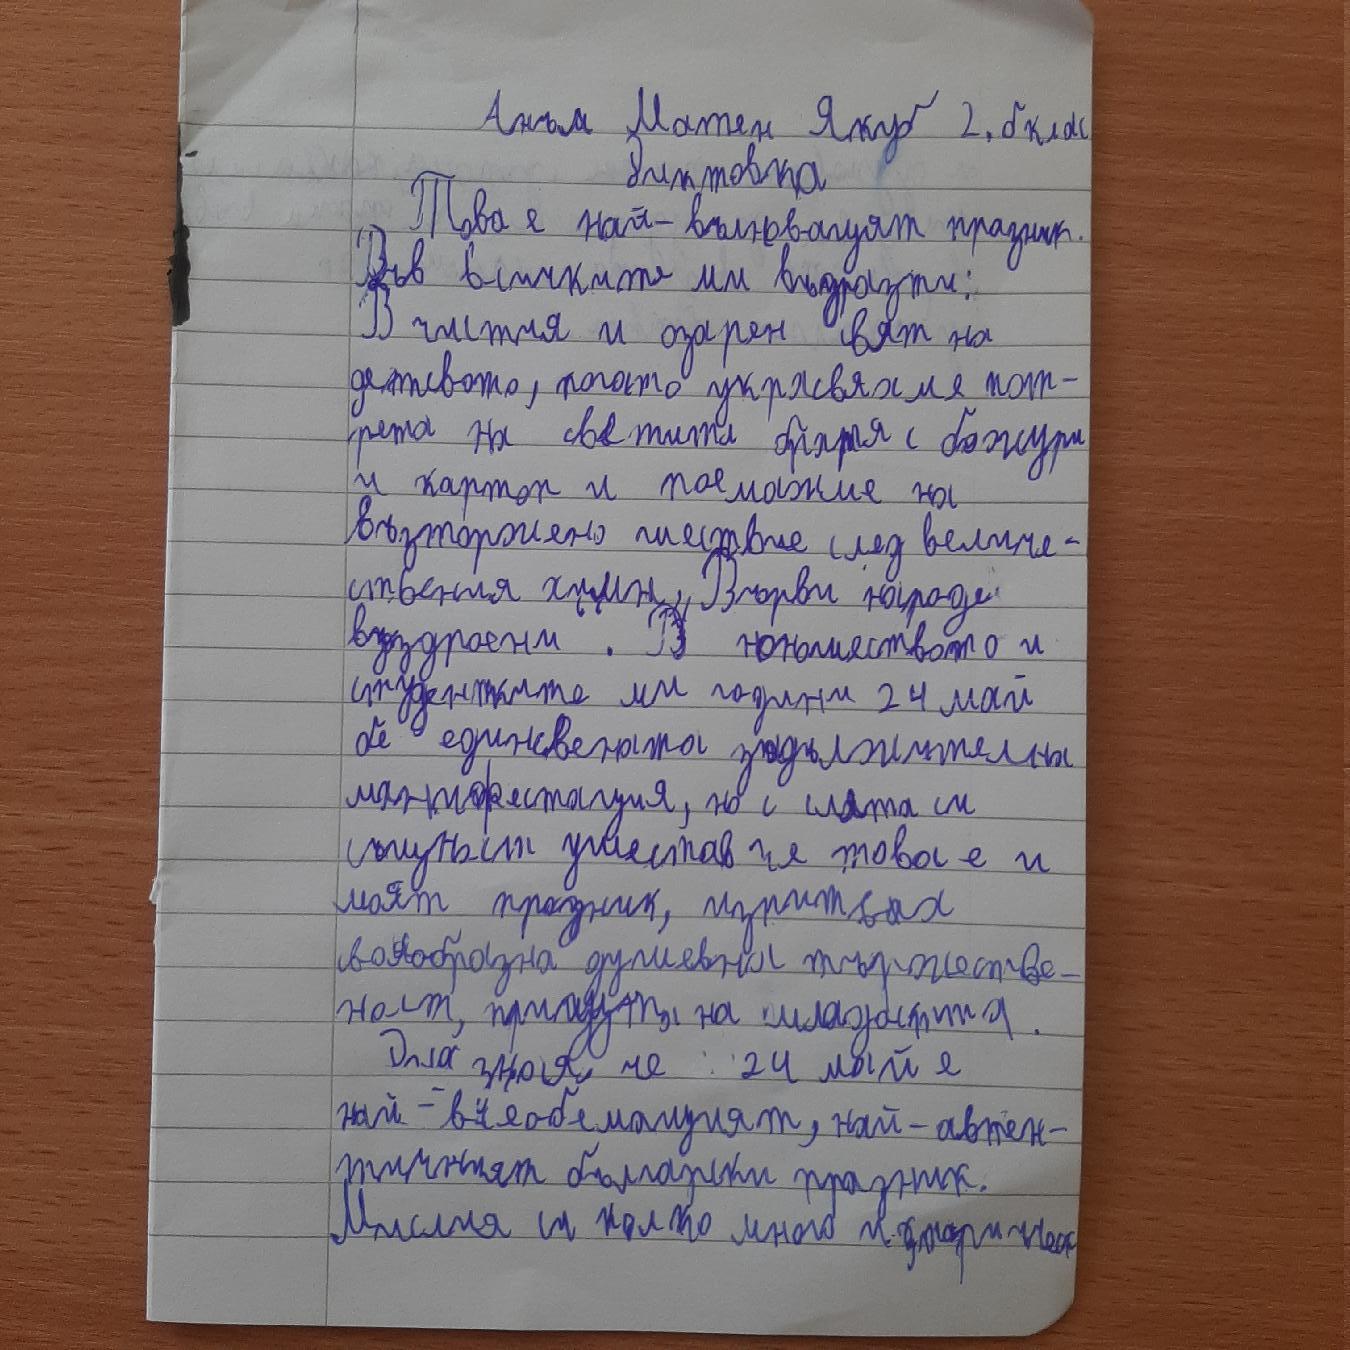 Анъл Матен Якуб 2, бклас
Диктовка
Това е най-вълнуващят празник.
Във всичките ми възрасти:
В чистия и озарен свят на
детсвото, когато украсвяхме порт-
рета на светите братя с божури
и картон и поемахме на
възторжено шествие след величе-
ствения химн, Върви народе
възродени. В юношеството и
студентките ми години 24 май
бе единсвената задължителна
манифестация, но с цялата си
същност участвах че това е и
моят празник, изпитвах
своеобразна душевна тържестве-
ност, на младостта.
Днес зная, че 24 май е
най-всеобемащият, най-автен-
тичният български празник.
Мисля си колко много